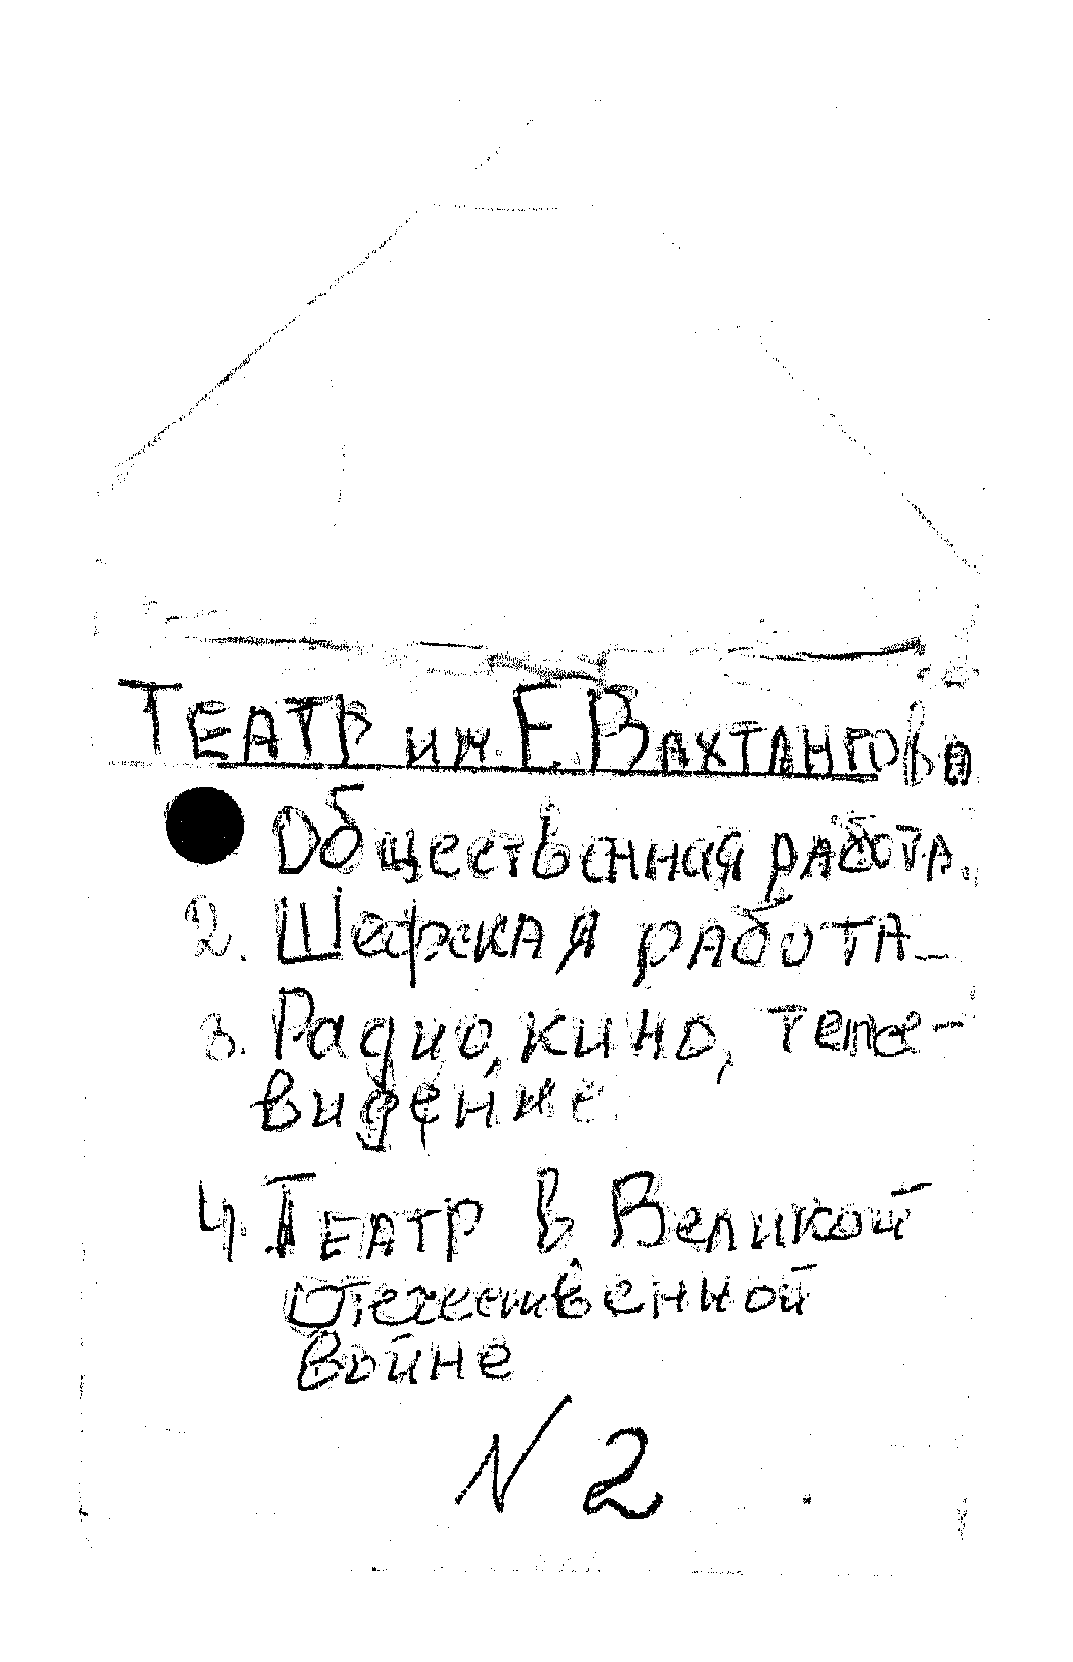 Театр им. Е. Вахтангова
Общественная работа.
2. Шефская работа
3. Радио, кино, теле-
видение.
4. Театр в Великой
Отечественной
войне
N 2